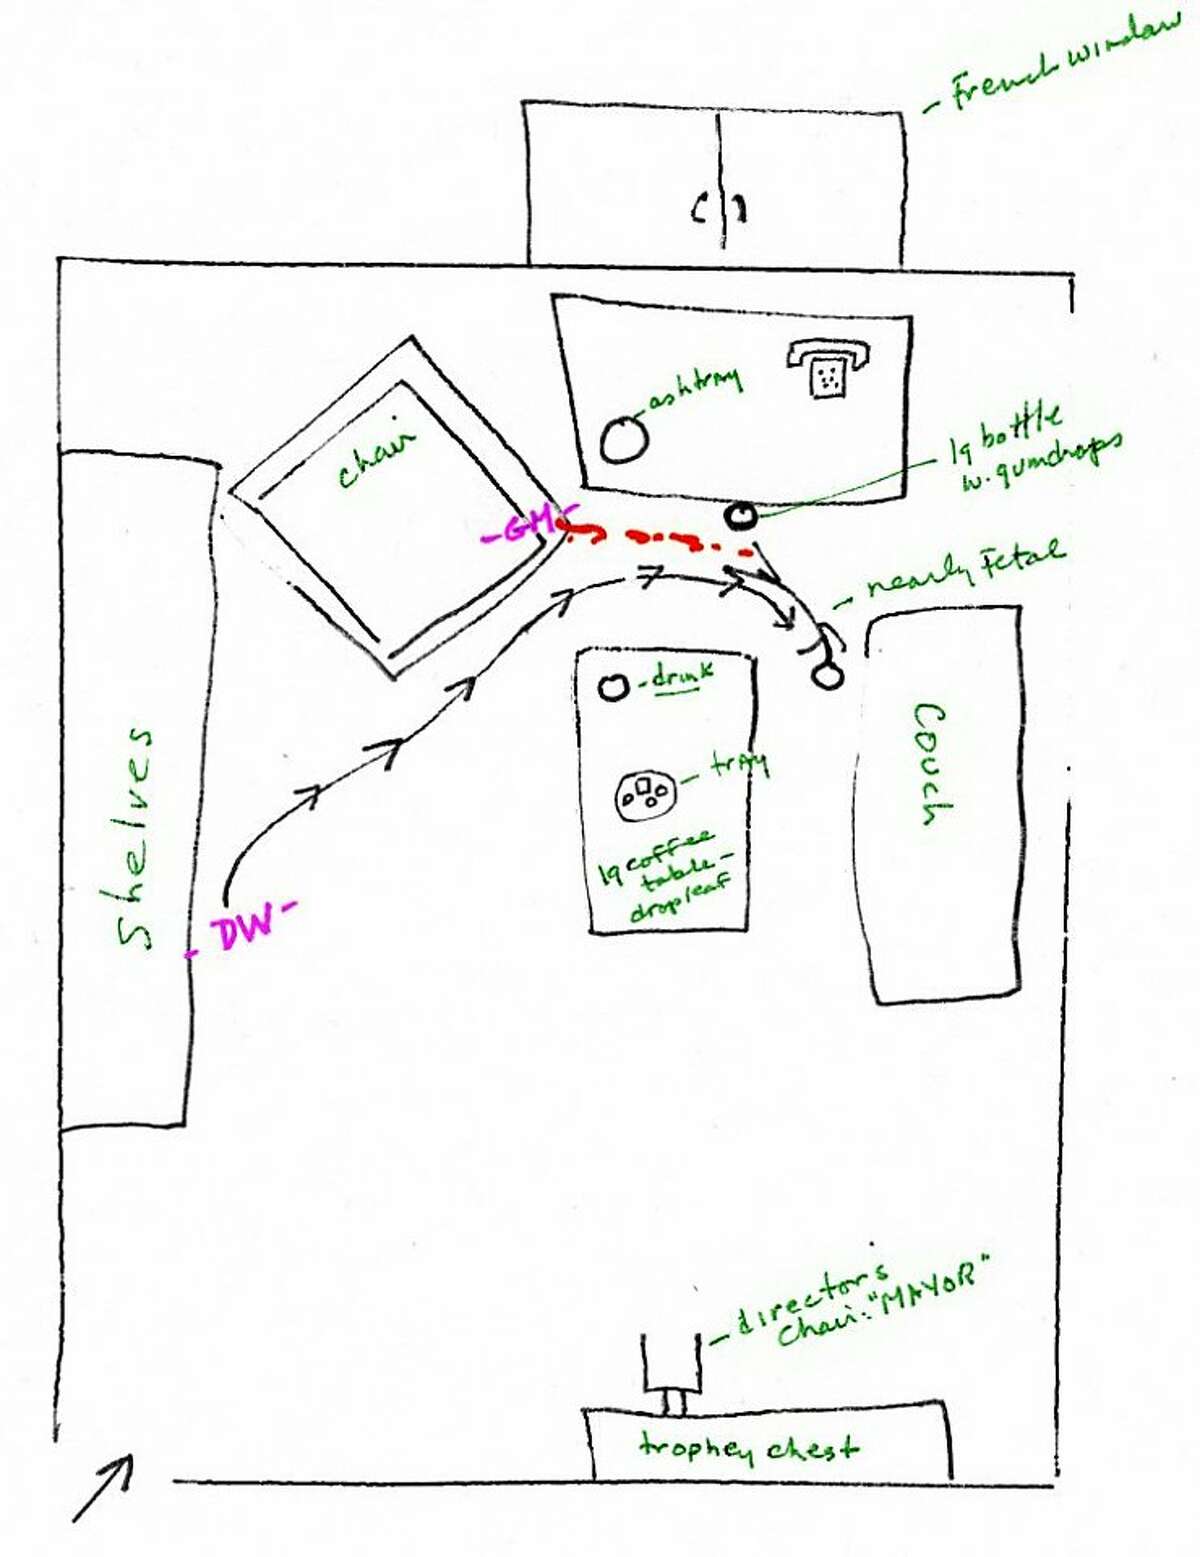 - French window
ashtray
lg bottle
w. gumdrops
chair
- GM -
- nearly fetal
- drink
- tray
lg coffee
table -
dropleaf
Couch
Shelves
- DW -
- directors
chair: "MAYOR"
trophey chest